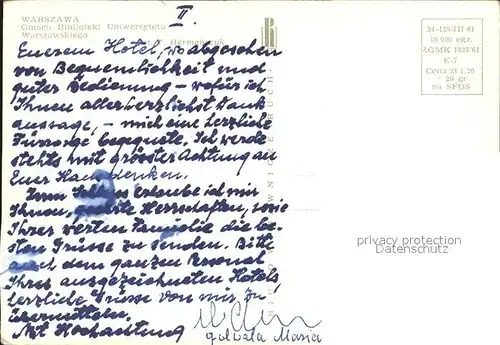 WARSZAWA
Gmach Biblioteki Uniwersytetu
Warszawskiego
II
Eurem Hotel, wo abgesehen
von Bequemlichkeit und
guter Bedienung – wofür ich
Ihnen allerherzlichst Dank
aussage, – mich eine herzliche
Fürsorge begegnete. Ich werde
stehts mit grösster Achtung an
Euer Haus denken.
Zum Schluss erlaube ich mir
Ihnen, geehrte Herrschaften, sowie
Ihrer werten Familie die be-
sten Grüsse zu senden. Bitte
auch dem ganzen Personal
Ihres ausgezeichneten Hotels
herzliche Grüsse von mir zu
übermitteln.
Mit Hochachtung
Maria
RUCH
24-129/III/61
10 000 egz.
ZGMK 1835/61
K-7
Cena zł 1,20
+ 20 gr
na SFOS
privacy protection
Datenschutz